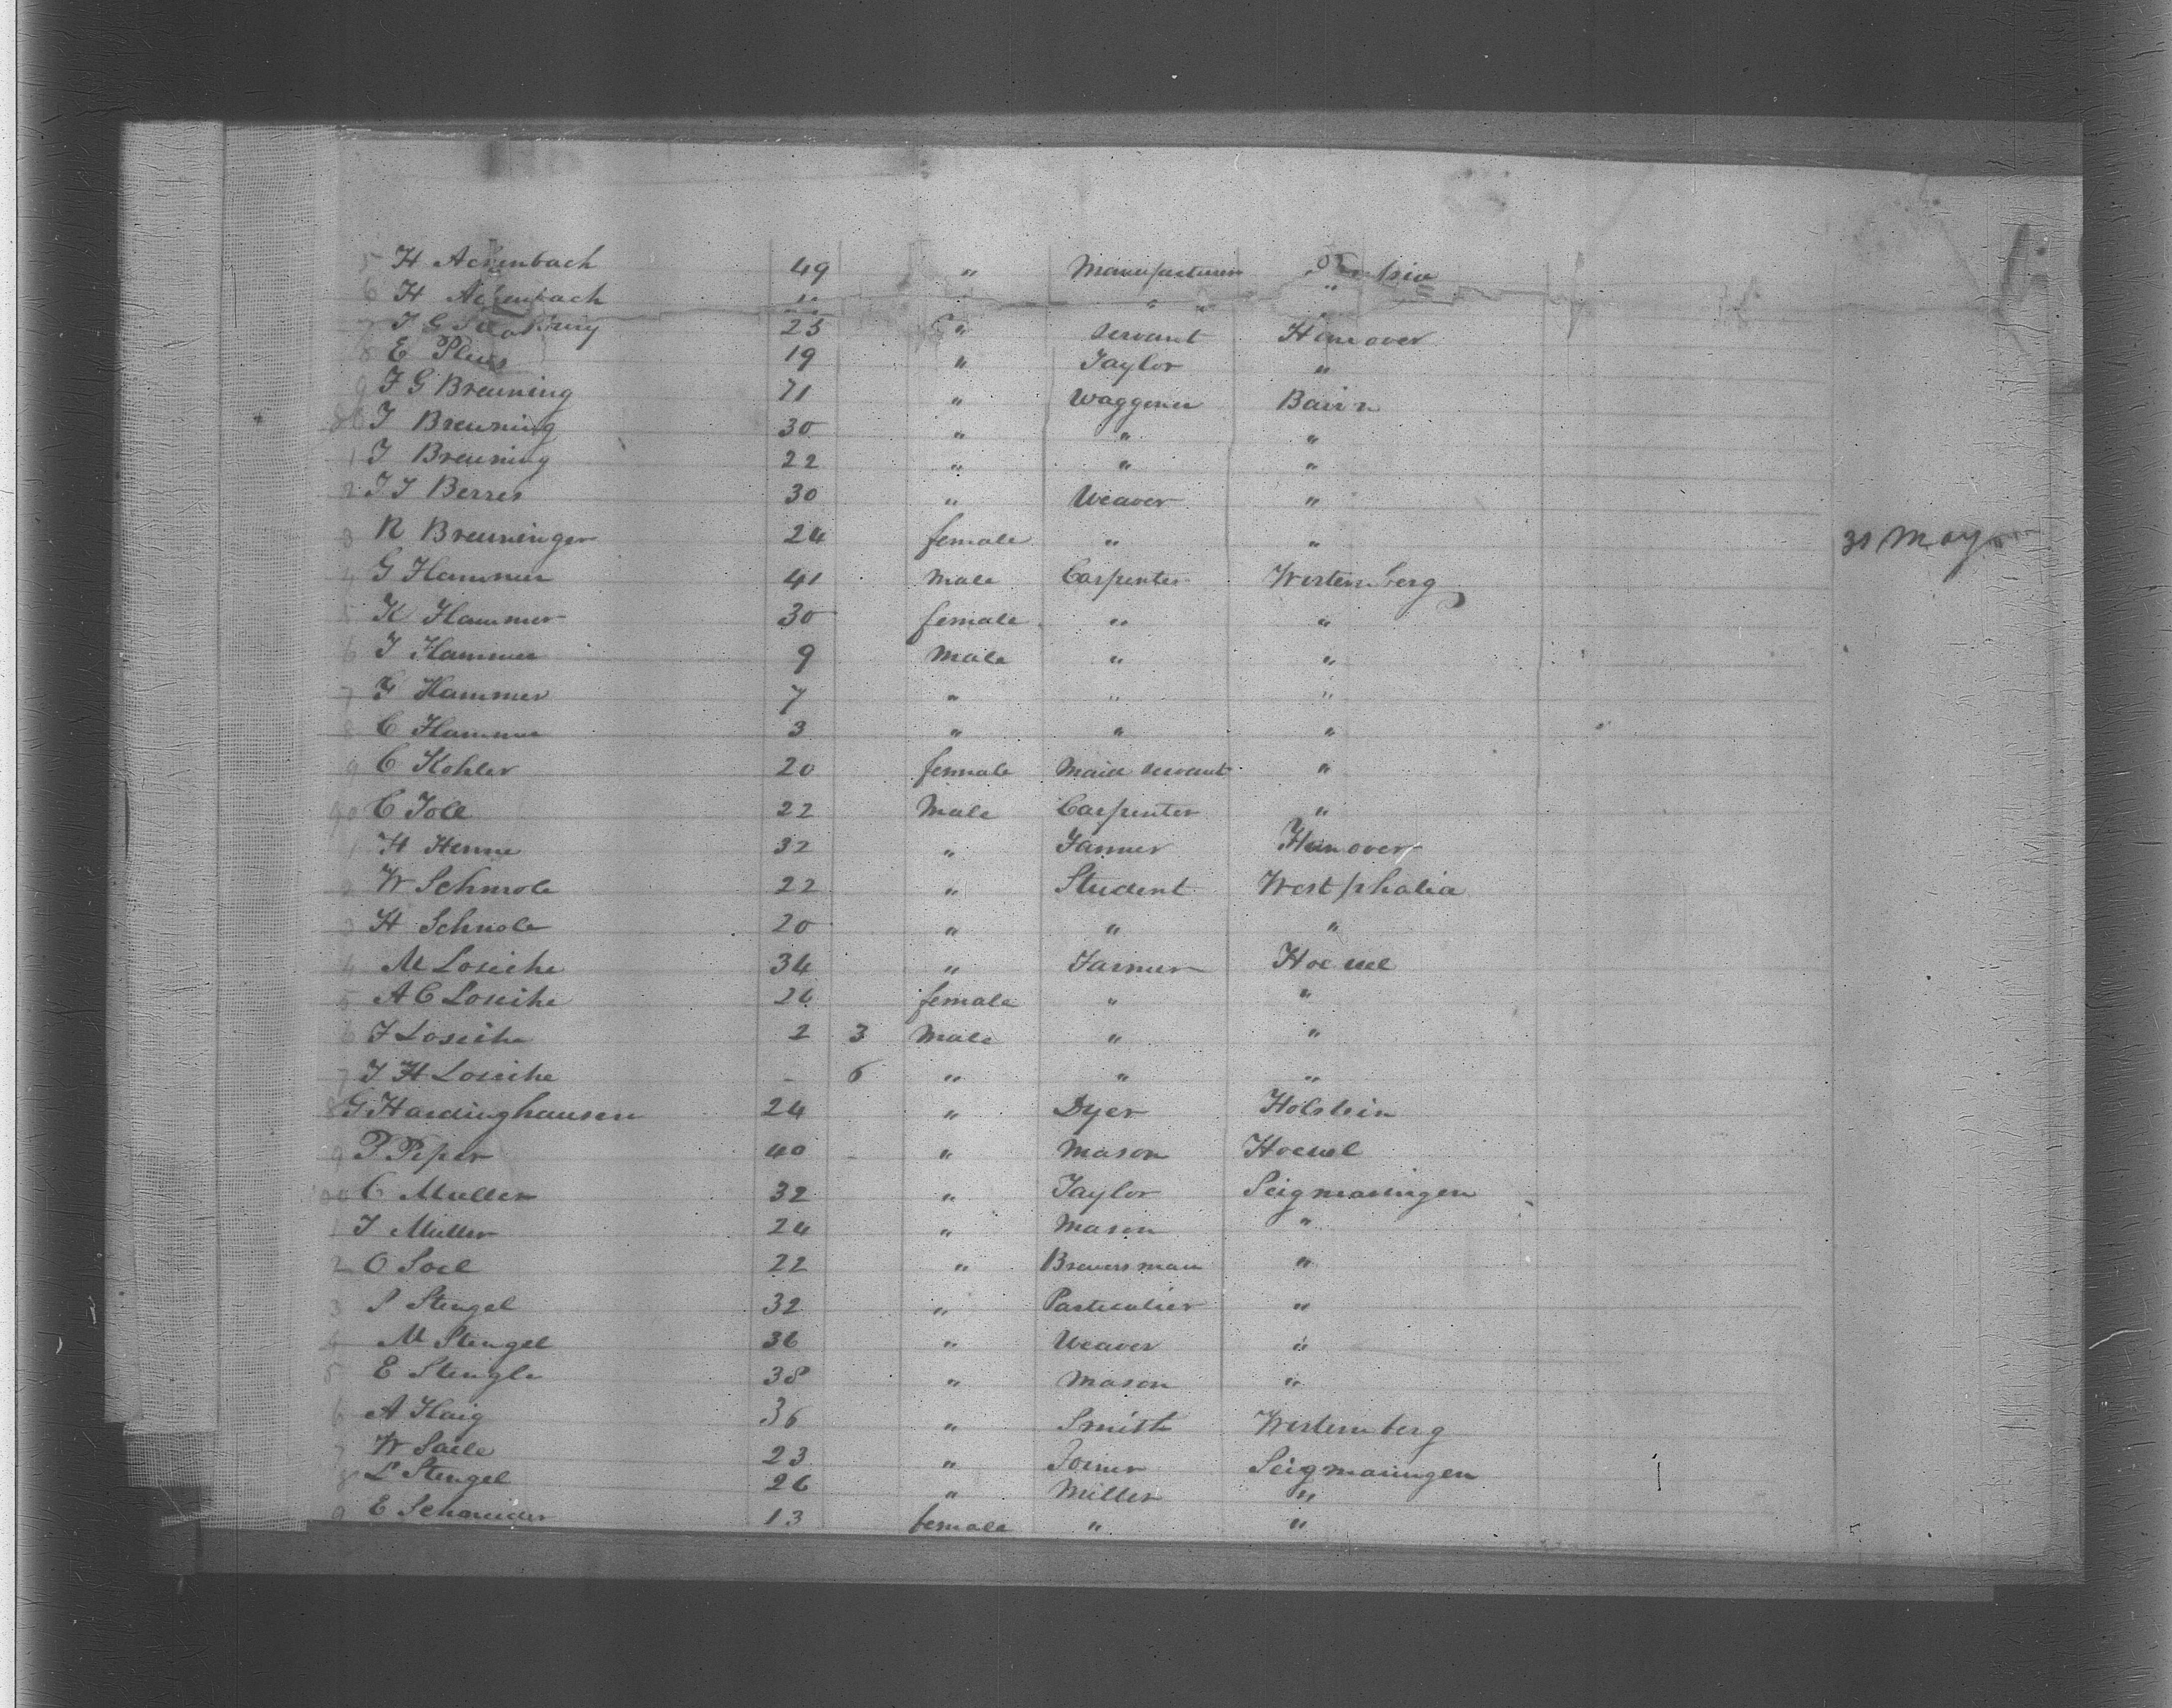 5 H Achenbach 49 " Manufacturer
6 H Achenbach " " " "
7 25 " Servant Hanover
8 E 19 " Taylor "
9 F G Breuning 71 " Waggoner Bairn
80 J Breuning 30 " " "
1 J Breuning 22 " " "
2 J J Berres 30 " Weaver "
3 R Breuninger 24 female " " 31 May
4 G Hammer 41 Male Carpenter Wirtemberg
5 K Hammer 30 female " "
6 J Hammer 9 Male " "
7 G Hammer 7 " " "
8 C Hammer 3 " " "
9 C Kohler 20 female Maid Servant "
90 C Joll 22 Male Carpenter "
1 H Henne 32 " Farmer Hanover
2 W Schmole 22 " Student Westphalia
3 H Schmole 20 " " "
4 M Loseihe 34 " Farmer
5 A C Loseihe 26 female " "
6 F Loseihe 2 3 Male " "
7 J H Loseihe - 6 " " "
8 G Hardinghausen 24 " Dyer Holstein
9 P Peper 40 - " Mason
100 C Muller 32 " Taylor Seigmaringen
1 J Muller 24 " Mason "
2 O Soel 22 " Brewersman "
3 S Stengel 32 " Particulier "
4 M Stengel 36 " Weaver "
5 E Stengle 38 " Mason "
6 A Haig 36 " Smith Wirtemberg
7 W Saile 23 " Joiner Seigmaringen
8 L Stengel 26 " Miller "
9 E Schneider 13 female " "